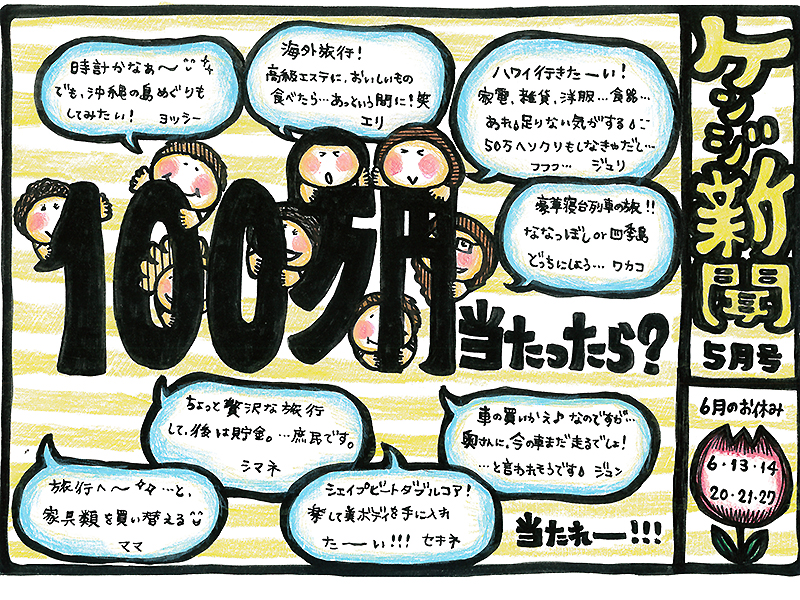 ケンジ新聞
5月号
100万円
当たったら?
時計かなぁ〜
でも、沖縄の島めぐりも
してみたい! ヨッシー
海外旅行!
高級エステに、おいしいもの
食べたら…あっという間に!笑
エリ
ハワイ行きたーい!
家電、雑貨、洋服…食器…
あれ足りない気がする
50万ヘソクリもしなきゃだし…
フフフ… ジュリ
豪華寝台列車の旅!!
ななつぼしor四季島
どっちにしよう… ワカコ
ちょっと贅沢な旅行
して、後は貯金。…庶民です。
シマネ
車の買いかえ♪なのですが…
奥さんに、今の車まだ走るでしょ!
…と言われそうです ジョン
旅行へ〜…と、
家具類を買い替える
ママ
シェイプビートダブルコア!
楽して美ボディを手に入れ
たーい!!! セキネ
当たれー!!!
6月のお休み
6・13・14
20・21・27